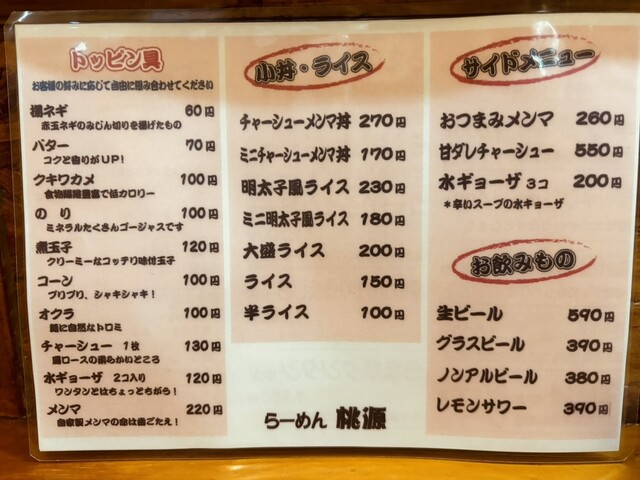 トッピン具
お客様の好みに応じて自由に組み合わせてください
揚ネギ 60円
赤玉ネギのみじん切りを揚げたもの
バター 70円
コクと香りがUP!
クキワカメ 100円
食物繊維豊富で低カロリー
のり 100円
ミネラルたくさんゴージャスです
煮玉子 120円
クリーミーなコッテリ味付玉子
コーン 100円
プリプリ、シャキシャキ!
オクラ 100円
麺に自然なトロミ
チャーシュー 1枚 130円
肩ロースの柔らかいところ
水ギョーザ 2コ入り 120円
ワンタンとはちょっとちがう!
メンマ 220円
自家製メンマの命は歯ごたえ!
小丼・ライス
チャーシューメンマ丼 270円
ミニチャーシューメンマ丼 170円
明太子風ライス 230円
ミニ明太子風ライス 180円
大盛ライス 200円
ライス 150円
半ライス 100円
らーめん 桃源
サイドメニュー
おつまみメンマ 260円
甘ダレチャーシュー 550円
水ギョーザ 3コ 200円
*辛いスープの水ギョーザ
お飲みもの
生ビール 590円
グラスビール 390円
ノンアルビール 380円
レモンサワー 390円